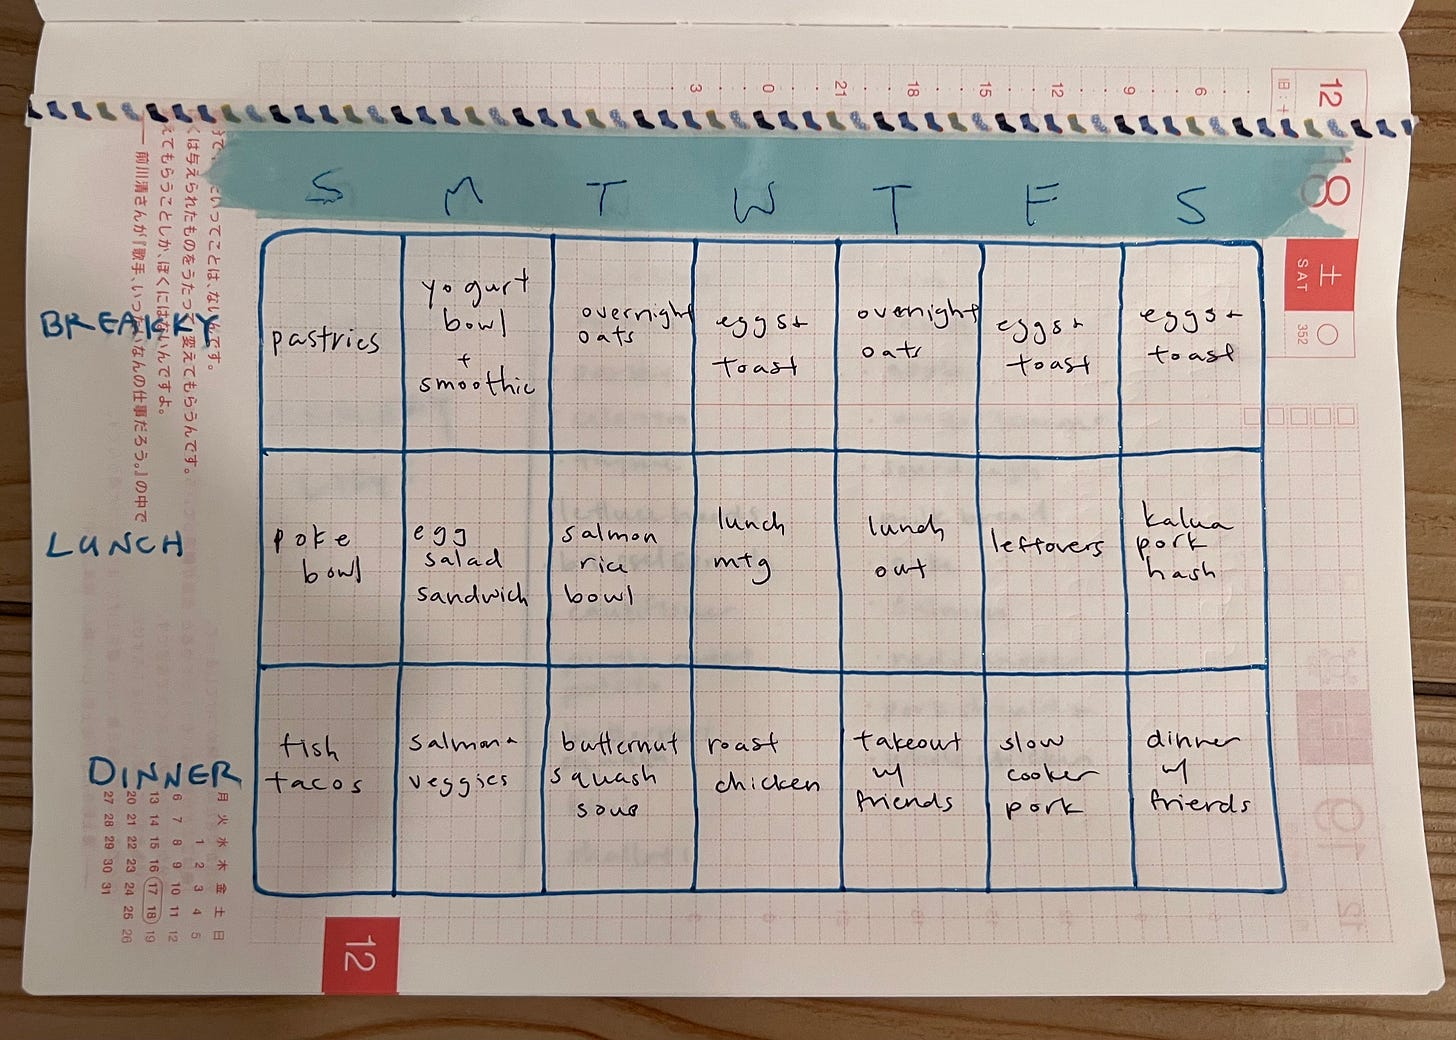 3 0 21 18 15 12 9 6
12
旧:十
18
土
SAT
352
S M T W T F S
BREAKKY
pastries
yogurt
bowl
+
smoothie
overnight
oats
eggs +
toast
overnight
oats
eggs +
toast
eggs +
toast
LUNCH
poke
bowl
egg
salad
sandwich
salmon
rice
bowl
lunch
mtg
lunch
out
leftovers
kalua
pork
hash
DINNER
fish
tacos
salmon +
veggies
butternut
squash
soup
roast
chicken
takeout
w/
friends
slow
cooker
pork
dinner
w/
friends
いってことは、ないんです。
くは与えられたものをうたって、変えてもらうんです。
えてもらうことしか、ぼくにはないんですよ。
── 前川清さんが『歌手、いったいなんの仕事だろう。』の中で
月 火 水 木 金 土 日
1 2 3 4 5
6 7 8 9 10 11 12
13 14 15 16 17 18 19
20 21 22 23 24 25 26
27 28 29 30 31
12